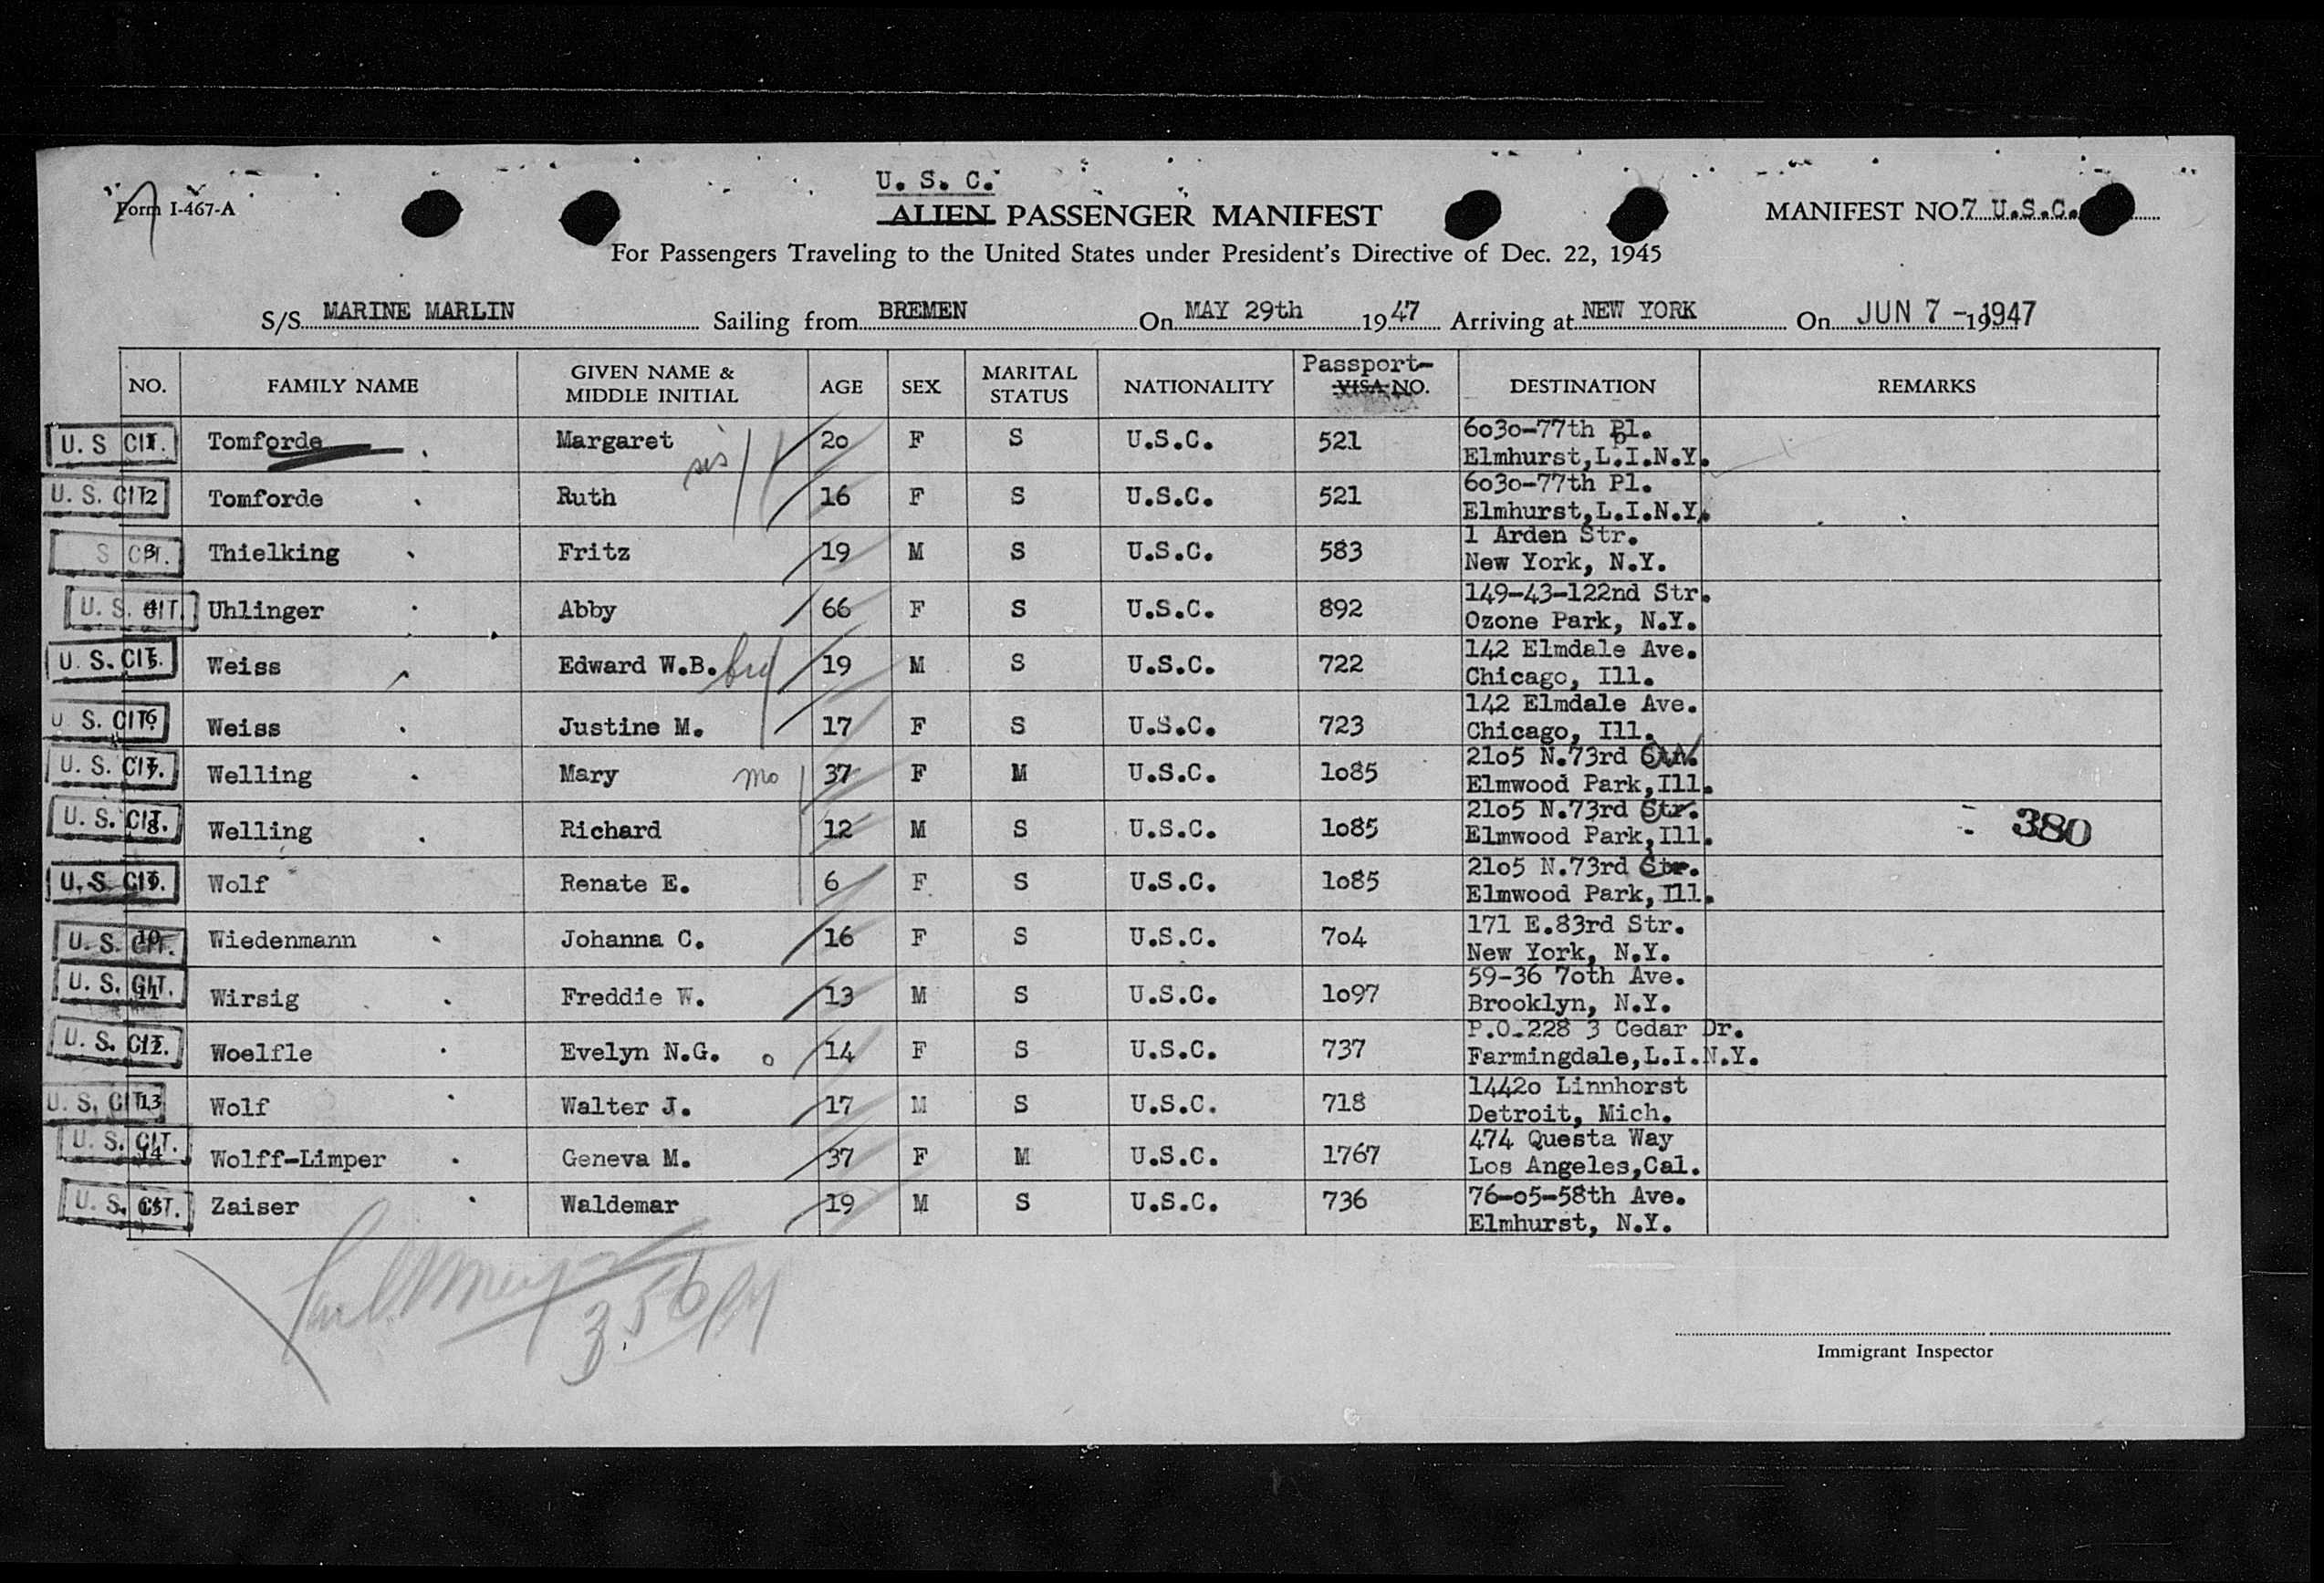 U. S. C.
Form I-467-A
ALIEN PASSENGER MANIFEST
MANIFEST NO. 7 U.S.C.
For Passengers Traveling to the United States under President's Directive of Dec. 22, 1945
S/S MARINE MARLIN Sailing from BREMEN On MAY 29th 1947 Arriving at NEW YORK On JUN 7 - 1947
NO. FAMILY NAME GIVEN NAME & MIDDLE INITIAL AGE SEX MARITAL STATUS NATIONALITY Passport- VISA NO. DESTINATION REMARKS
U. S CIT. 1 Tomforde Margaret sis 20 F S U.S.C. 521 6030-77th Pl.
Elmhurst,L.I.N.Y.
U. S. CIT 2 Tomforde Ruth 16 F S U.S.C. 521 6030-77th Pl.
Elmhurst,L.I.N.Y.
S CIT. 3 Thielking Fritz 19 M S U.S.C. 583 1 Arden Str.
New York, N.Y.
U. S. CIT. 4 Uhlinger Abby 66 F S U.S.C. 892 149-43-122nd Str.
Ozone Park, N.Y.
U. S. CIT. 5 Weiss Edward W.B. 19 M S U.S.C. 722 142 Elmdale Ave.
Chicago, Ill.
U S. CIT. 6 Weiss Justine M. 17 F S U.S.C. 723 142 Elmdale Ave.
Chicago, Ill.
U. S. CIT. 7 Welling Mary mo 37 F M U.S.C. 1085 2105 N.73rd
Elmwood Park,Ill.
U. S. CIT. 8 Welling Richard 12 M S U.S.C. 1085 2105 N.73rd Str.
Elmwood Park,Ill. 380
U. S. CIT. 9 Wolf Renate E. 6 F S U.S.C. 1085 2105 N.73rd Str.
Elmwood Park, Ill.
U. S. CIT. 10 Wiedenmann Johanna C. 16 F S U.S.C. 704 171 E.83rd Str.
New York, N.Y.
U. S. CIT. 11 Wirsig Freddie W. 13 M S U.S.C. 1097 59-36 70th Ave.
Brooklyn, N.Y.
U. S. CIT. 12 Woelfle Evelyn N.G. 14 F S U.S.C. 737 P.O.228 3 Cedar Dr.
Farmingdale,L.I.N.Y.
U. S. CIT 13 Wolf Walter J. 17 M S U.S.C. 718 14420 Linnhorst
Detroit, Mich.
U. S. CIT. 14 Wolff-Limper Geneva M. 37 F M U.S.C. 1767 474 Questa Way
Los Angeles,Cal.
U. S. CIT. 15 Zaiser Waldemar 19 M S U.S.C. 736 76-05-58th Ave.
Elmhurst, N.Y.
Immigrant Inspector